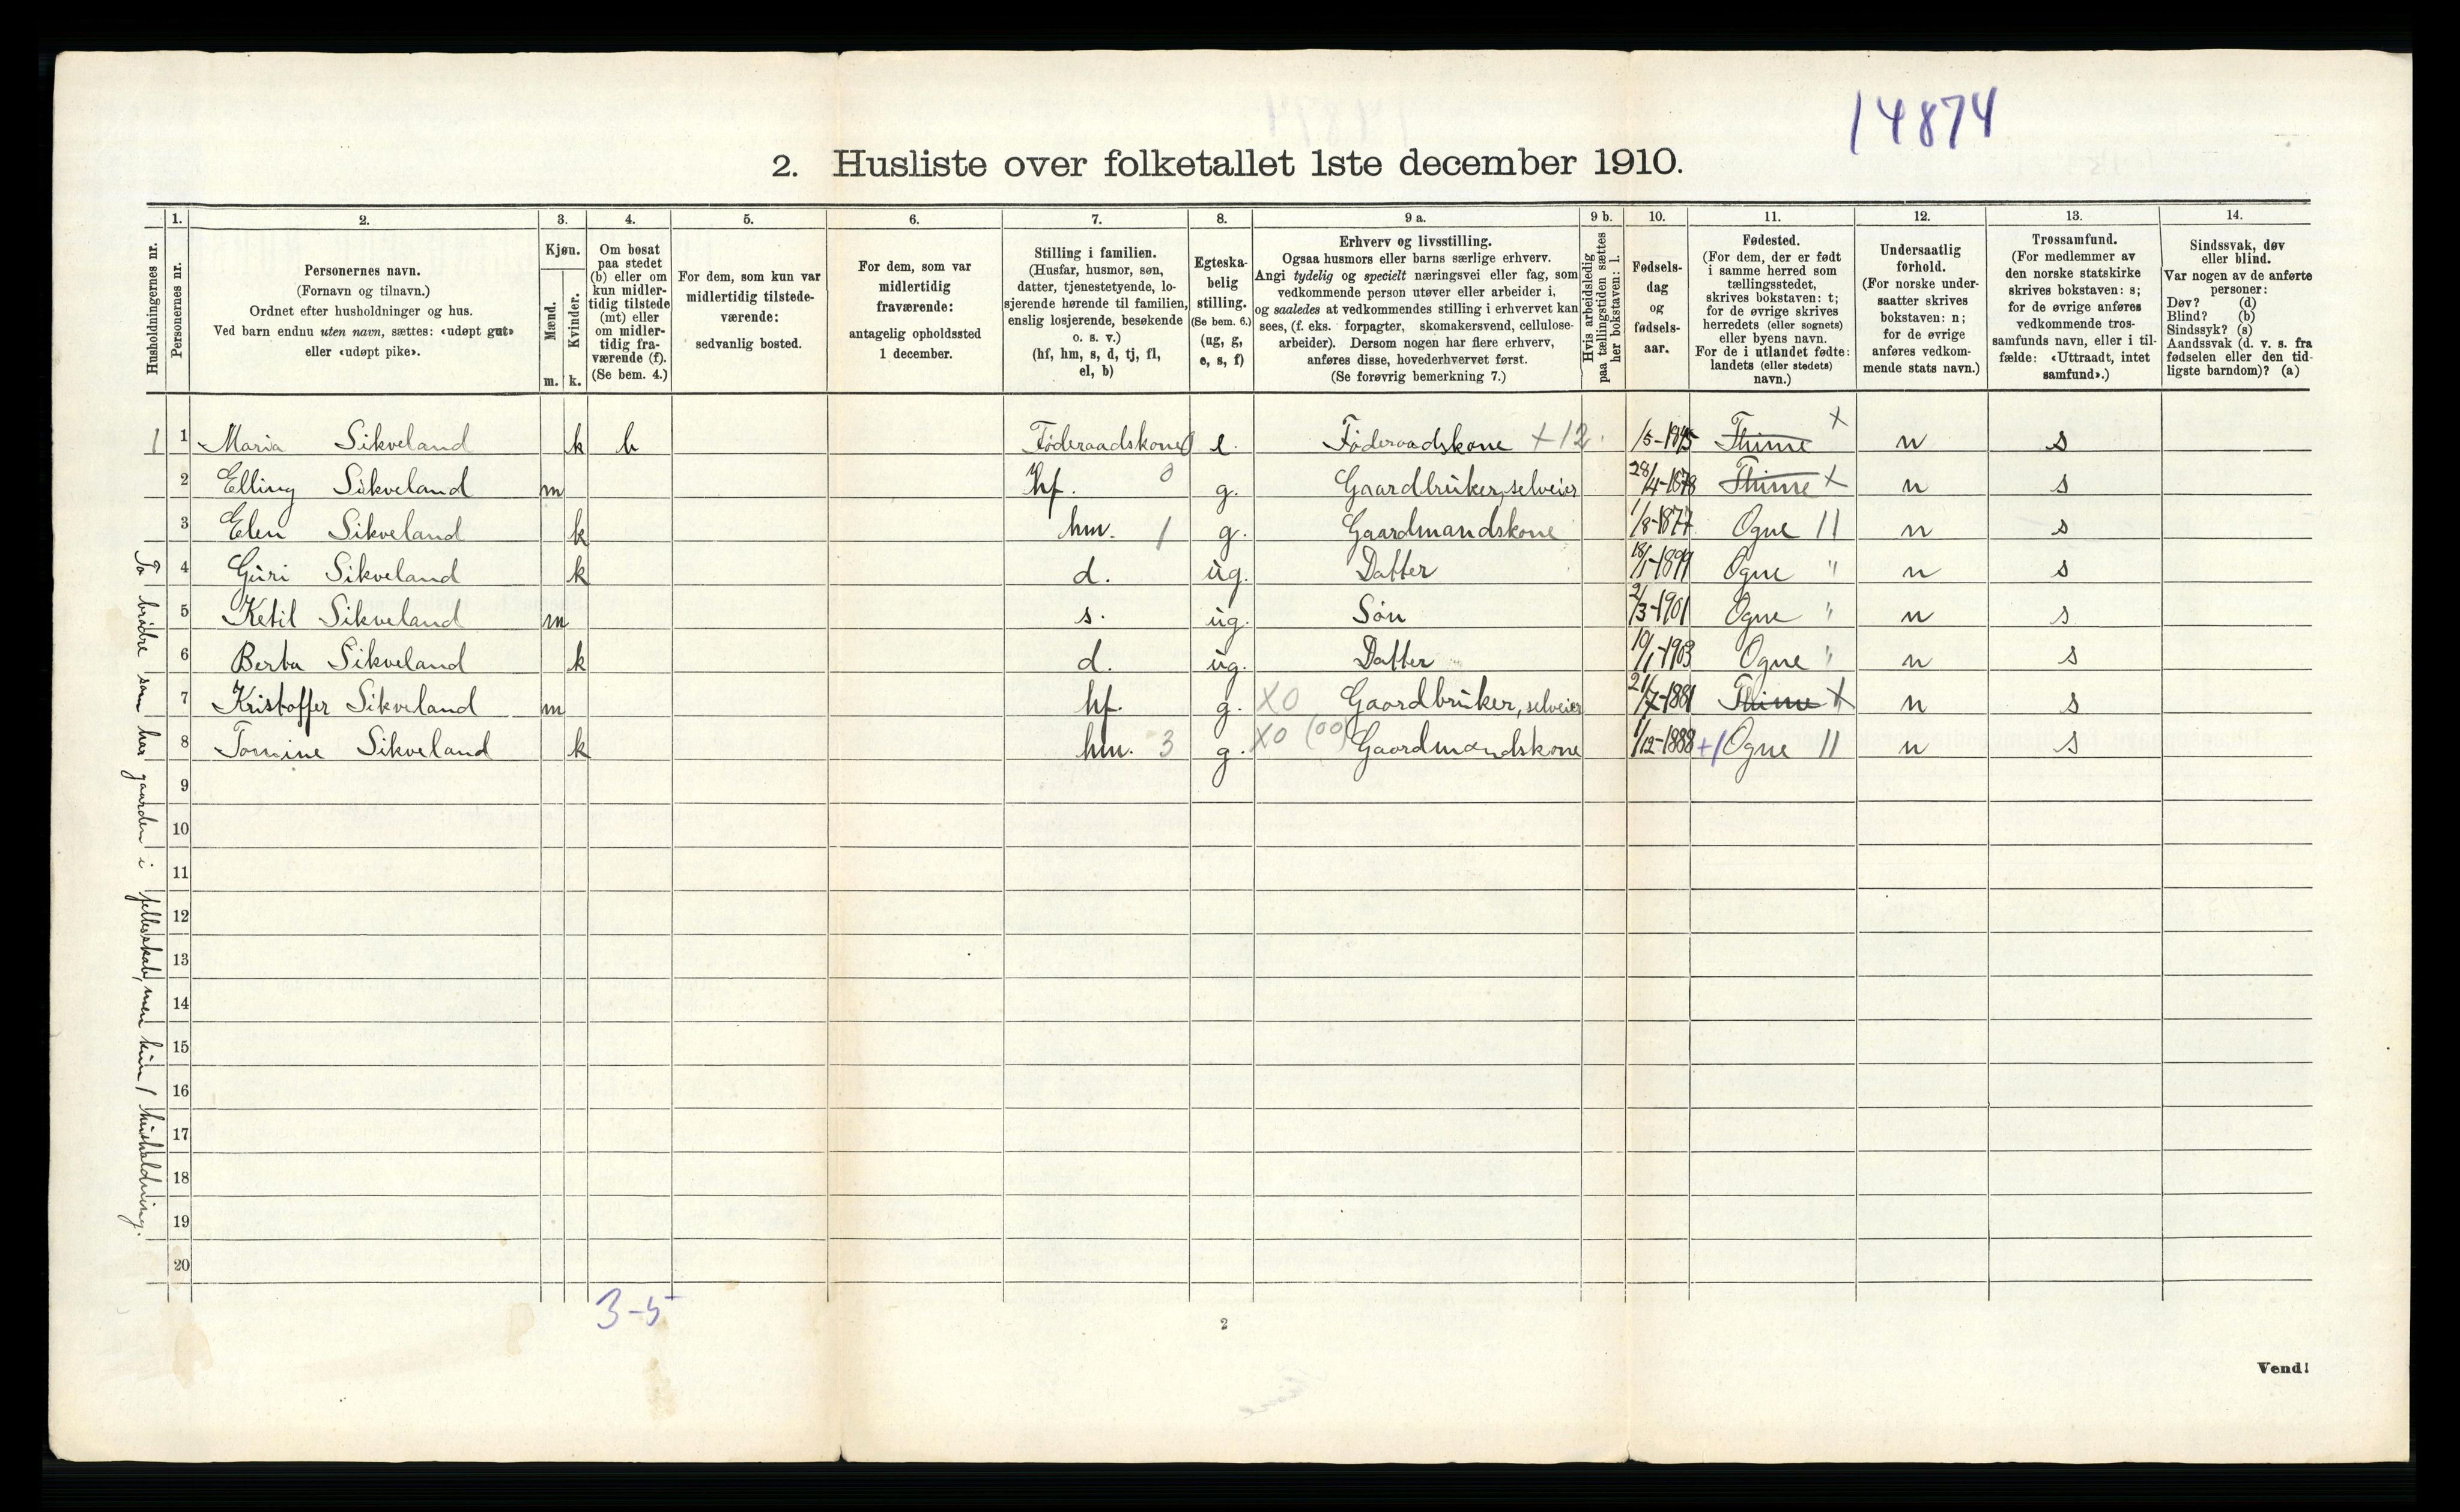 14874
2. Husliste over folketallet 1ste december 1910.
Husholdningernes nr.
1.
Personernes nr.
2.
Personernes navn.
(Fornavn og tilnavn.)
Ordnet efter husholdninger og hus.
Ved barn endnu uten navn, sættes: «udøpt gut»
eller «udøpt pike».
3.
Kjøn.
Mænd.
Kvinder.
m. k.
4.
Om bosat
paa stedet
(b) eller om
kun midler-
tidig tilstede
(mt) eller
om midler-
tidig fra-
værende (f).
(Se bem. 4.)
5.
For dem, som kun var
midlertidig tilstede-
værende:
sedvanlig bosted.
6.
For dem, som var
midlertidig
fraværende:
antagelig opholdssted
1 december.
7.
Stilling i familien.
(Husfar, husmor, søn,
datter, tjenestetyende, lo-
sjerende hørende til familien,
enslig losjerende, besøkende
o. s. v.)
(hf, hm, s, d, tj, fl,
el, b)
8.
Egteska-
belig
stilling.
(Se bem. 6.)
(ug, g,
e, s, f)
9 a.
Erhverv og livsstilling.
Ogsaa husmors eller barns særlige erhverv.
Angi tydelig og specielt næringsvei eller fag, som
vedkommende person utøver eller arbeider i,
og saaledes at vedkommendes stilling i erhvervet kan
sees, (f. eks. forpagter, skomakersvend, cellulose-
arbeider). Dersom nogen har flere erhverv,
anføres disse, hovederhvervet først.
(Se forøvrig bemerkning 7.)
9 b.
Hvis arbeidsledig
paa tællingstiden sættes
her bokstaven: l.
10.
Fødsels-
dag
og
fødsels-
aar.
11.
Fødested.
(For dem, der er født
i samme herred som
tællingsstedet,
skrives bokstaven: t;
for de øvrige skrives
herredets (eller sognets)
eller byens navn.
For de i utlandet fødte:
landets (eller stedets)
navn.)
12.
Undersaatlig
forhold.
(For norske under-
saatter skrives
bokstaven: n;
for de øvrige
anføres vedkom-
mende stats navn.)
13.
Trossamfund.
(For medlemmer av
den norske statskirke
skrives bokstaven: s;
for de øvrige anføres
vedkommende tros-
samfunds navn, eller i til-
fælde: «Uttraadt, intet
samfund».)
14.
Sindssvak, døv
eller blind.
Var nogen av de anførte
personer:
Døv? (d)
Blind? (b)
Sindssyk? (s)
Aandssvak (d. v. s. fra
fødselen eller den tid-
ligste barndom)? (a)
1 1 Maria Sikveland k b Føderaadskone 0 e. Føderaadskone +12. 1/5-1845 Thime x n s
2 Elling Sikveland m hf. 0 g. Gaardbruker, selveier 28/4-1878 Thime x n s
3 Elen Sikveland k hm. 1 g. Gaardmandskone 1/8-1877 Ogne 11 n s
4 Guri Sikveland k d. ug. Datter 18/1-1899 Ogne " n s
5 Ketil Sikveland m s. ug. Søn 2/3-1901 Ogne " n s
6 Berta Sikveland k d. ug. Datter 10/1-1903 Ogne " n s
7 Kristoffer Sikveland m hf. g. X0 Gaardbruker, selveier 21/7-1881 Thime x n s
8 Tomine Sikveland k hm. 3 g. X0 (00) Gaardmandskone 1/12-1888 +1 Ogne 11 n s
9
10
11
12
13
14
15
16
17
18
19
20
To brødre som har gaarden i fellesskab, men kun 1 husholdning.
3-5
2
Vend!